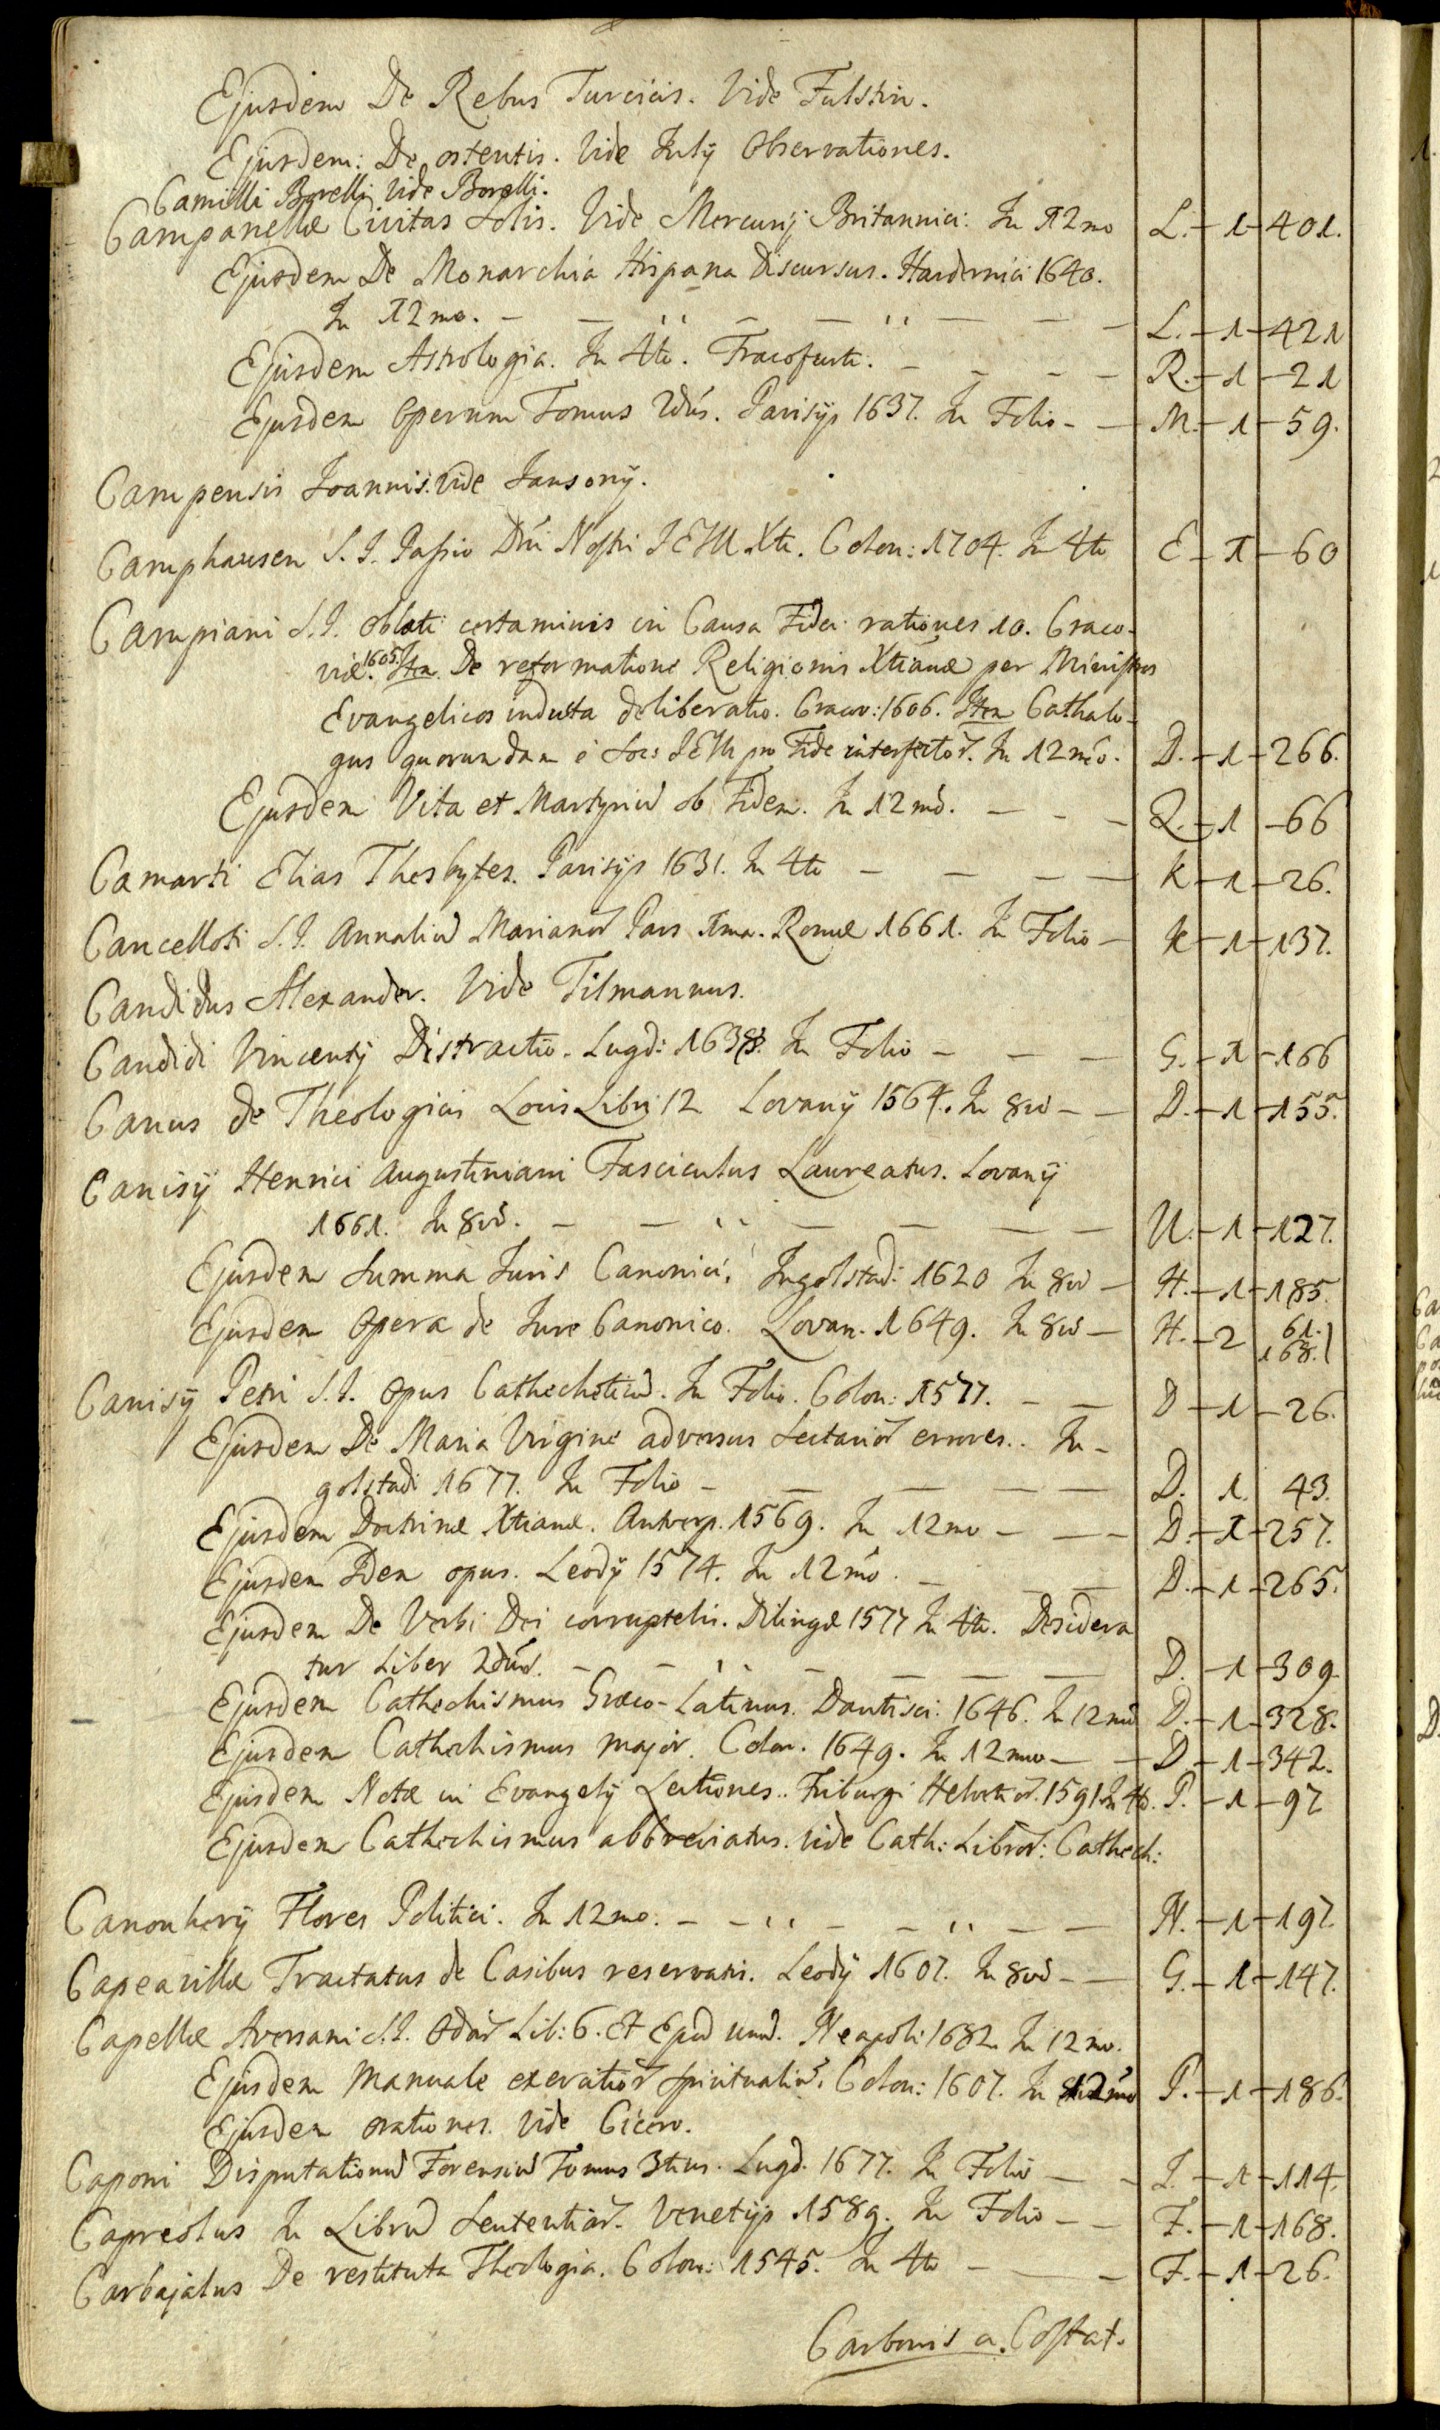 Ejusdem De Rebus Turcicis. Vide Fulstin.
Ejusdem: De ostentis. Vide Julij Observationes.
Camilli Borelli Vide Borelli.
Campanellæ Civitas Solis. Vide Mercurij Britannici: In 12mo L. - 1 - 401.
Ejusdem De Monarchia Hispana Discursus. Hardervici 1640.
In 12mo. - L. - 1 - 421
Ejusdem Astrologia. In 4to. Fracofurti. - R. - 1 - 21
Ejusdem Operum Tomus 2dus. Parisijs 1637. In Folio - M. - 1 - 59.
Campensis Joannis. Vide Jansonij.
Camphausen S.J. Passio Dni Nostri JESU Xti. Colon: 1704. In 4to E - 1 - 60
Campiani S.J. oblati certaminis in Causa Fidei rationes 10. Craco-
viæ. 1605. Item De reformatione Religionis Xtianæ per Ministros
Evangelicos inducta deliberatio. Cracov: 1606. Item Cathalo-
gus quorundam è Soc: JESU pro Fide interfector. In 12mo. D. - 1 - 266.
Ejusdem Vita et Martyriu ob Fidem. In 12mo. - Q. - 1 - 66
Camarti Elias Thesbytes. Parisijs 1631. In 4to - K - 1 - 26.
Cancelloti S.J. Annaliu Marianor Pars 1ma. Romæ 1661. In Folio - K - 1 - 137.
Candidus Alexander. Vide Tilmannus.
Candidi Vincentij Distractio. Lugd: 1638. In Folio - G. - 1 - 166
Canus de Theologicis Locis Libri 12 Lovanij 1564. In 8vo - D. - 1 - 155.
Canisij Henrici Augustiniani Fasciculus Laureatus. Lovanij
1661. In 8vo. - U. - 1 - 127.
Ejusdem Summa Juris Canonici. Ingolstad: 1620 In 8vo - H. - 1 - 185.
Ejusdem Opera de Jure Canonico. Lovan. 1649. In 8vo - H. - 2 61. 168.
Canisij Petri S.J. Opus Cathecheticu. In Folio. Colon: 1577. - D - 1 - 26.
Ejusdem De Maria Virgine adversus Sectarior errores. In-
golstadi 1677. In Folio - D. 1. 43.
Ejusdem Doctrinæ Xtianæ. Antverp. 1569. In 12mo - D. - 1 - 257.
Ejusdem Idem opus. Leodij 1574. In 12mo. - D. - 1 - 265.
Ejusdem De Verbi Dei corruptelis. Dilingæ 1577 In 4to. Desidera
tur Liber 2dus. - D. - 1 - 309.
Ejusdem Cathechismus Græco-Latinus. Dantisci: 1646. In 12mo D. - 1 - 328.
Ejusdem Cathechismus major. Colon. 1649. In 12mo - D - 1 - 342.
Ejusdem Notæ in Evangelij Lectiones. Friburgi Helvetior. 1591 In 4to. P. - 1 - 97
Ejusdem Cathechismus abbreviatus. Vide Cath: Libror: Cathech:
Canonherij Flores Politici. In 12mo. - N. - 1 - 197.
Capeavillæ Tractatus de Casibus reservatis. Leodij 1607. In 8vo - G. - 1 - 147.
Capellæ Aversani S.J. Odar Lib: 6. Et Epod unu. Neapoli 1682. In 12mo.
Ejusdem Manuale exercitior spiritualiu. Colon: 1607. In 12mo P. - 1 - 186.
Ejusdem orationes. Vide Cicero.
Caponi Disputationu Forensiu Tomus 3tius. Lugd. 1677. In Folio - I. - 1 - 114.
Capreolus In Libru Sententiar. Venetijs 1589. In Folio - F. - 1 - 168.
Carbajalus De restituta Theologia. Colon: 1545. In 4to - F. - 1 - 26.
Carbonis a. Costat.